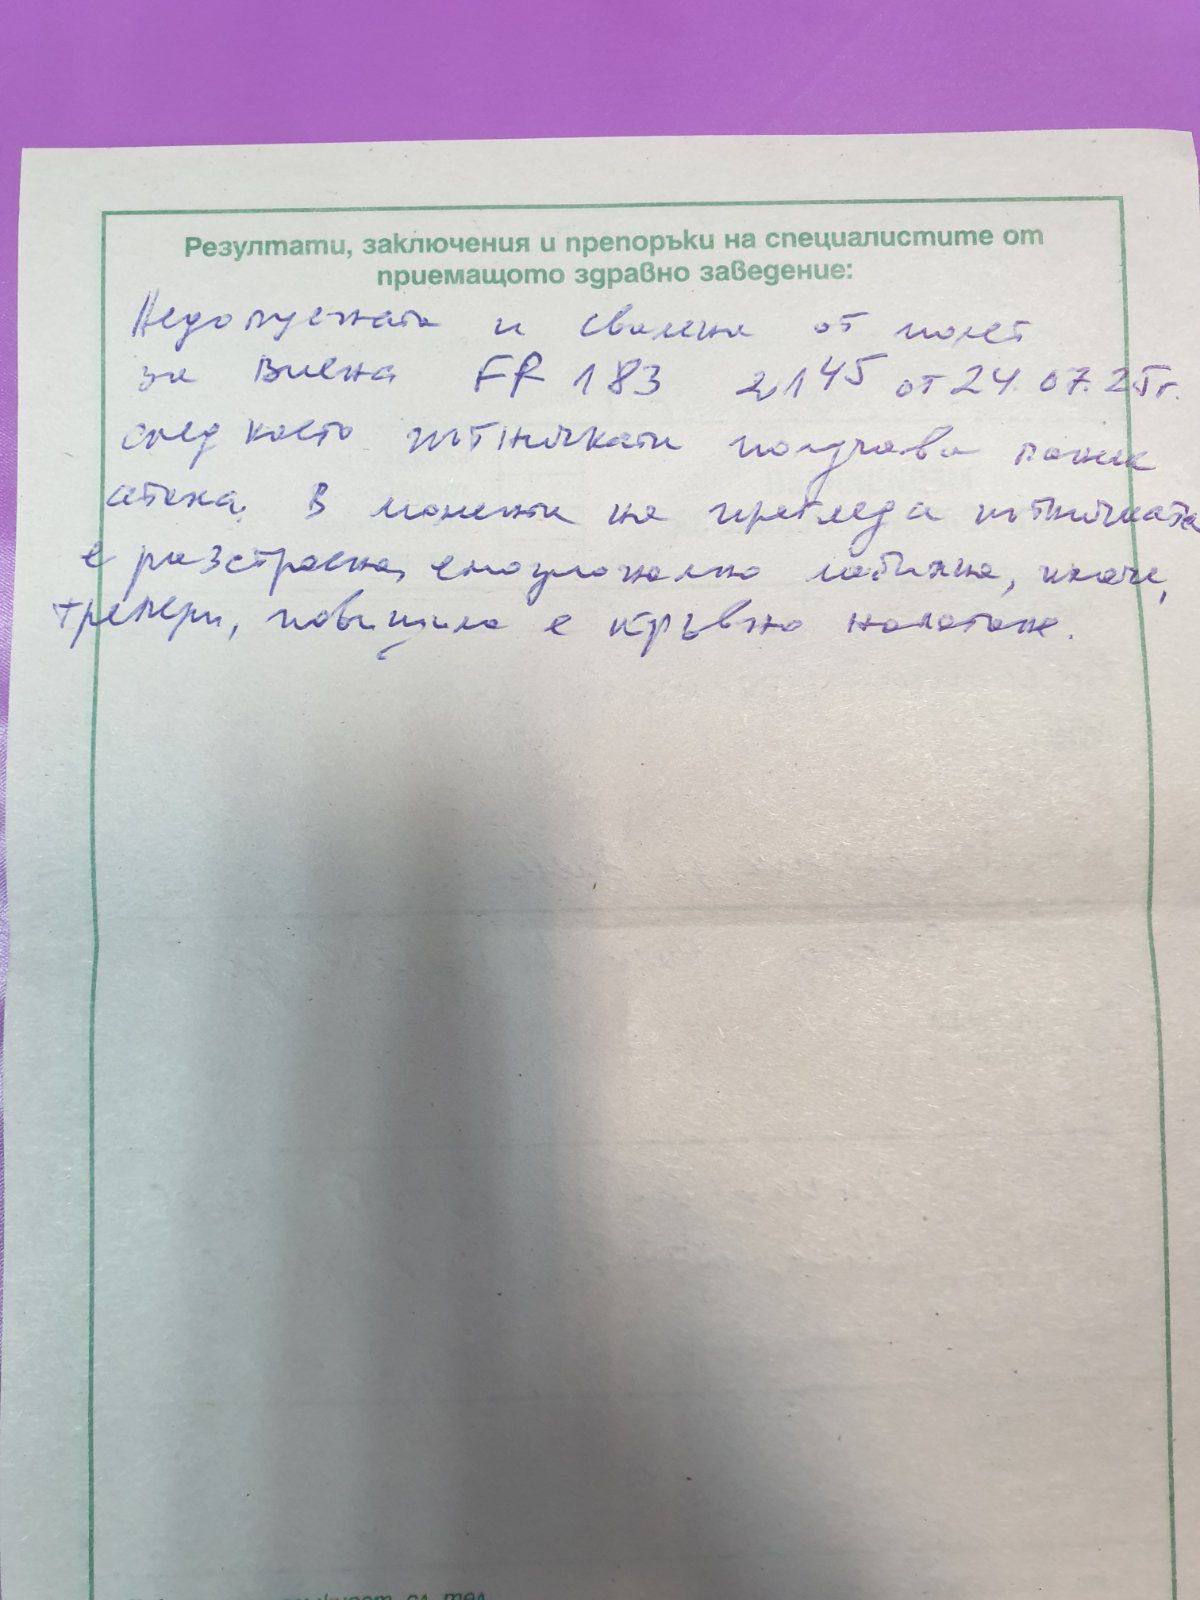 Резултати, заключения и препоръки на специалистите от
приемащото здравно заведение:
Недопусната и свалена от полет
за Виена FR 183 2145 от 24.07.25г.
след което пътничката получава паник
атака. В момента на прегледа пътничката
е разстроена, емоционално лабилна, плаче,
трепери, повишила е кръвно налягане.